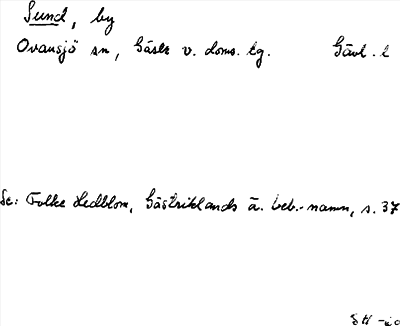 Sund, by
Ovansjö sn, Gästr v. doms. tg. Gävl. l
Se: Folke Hedblom, Gästriklands ä. beb.-namn, s. 37